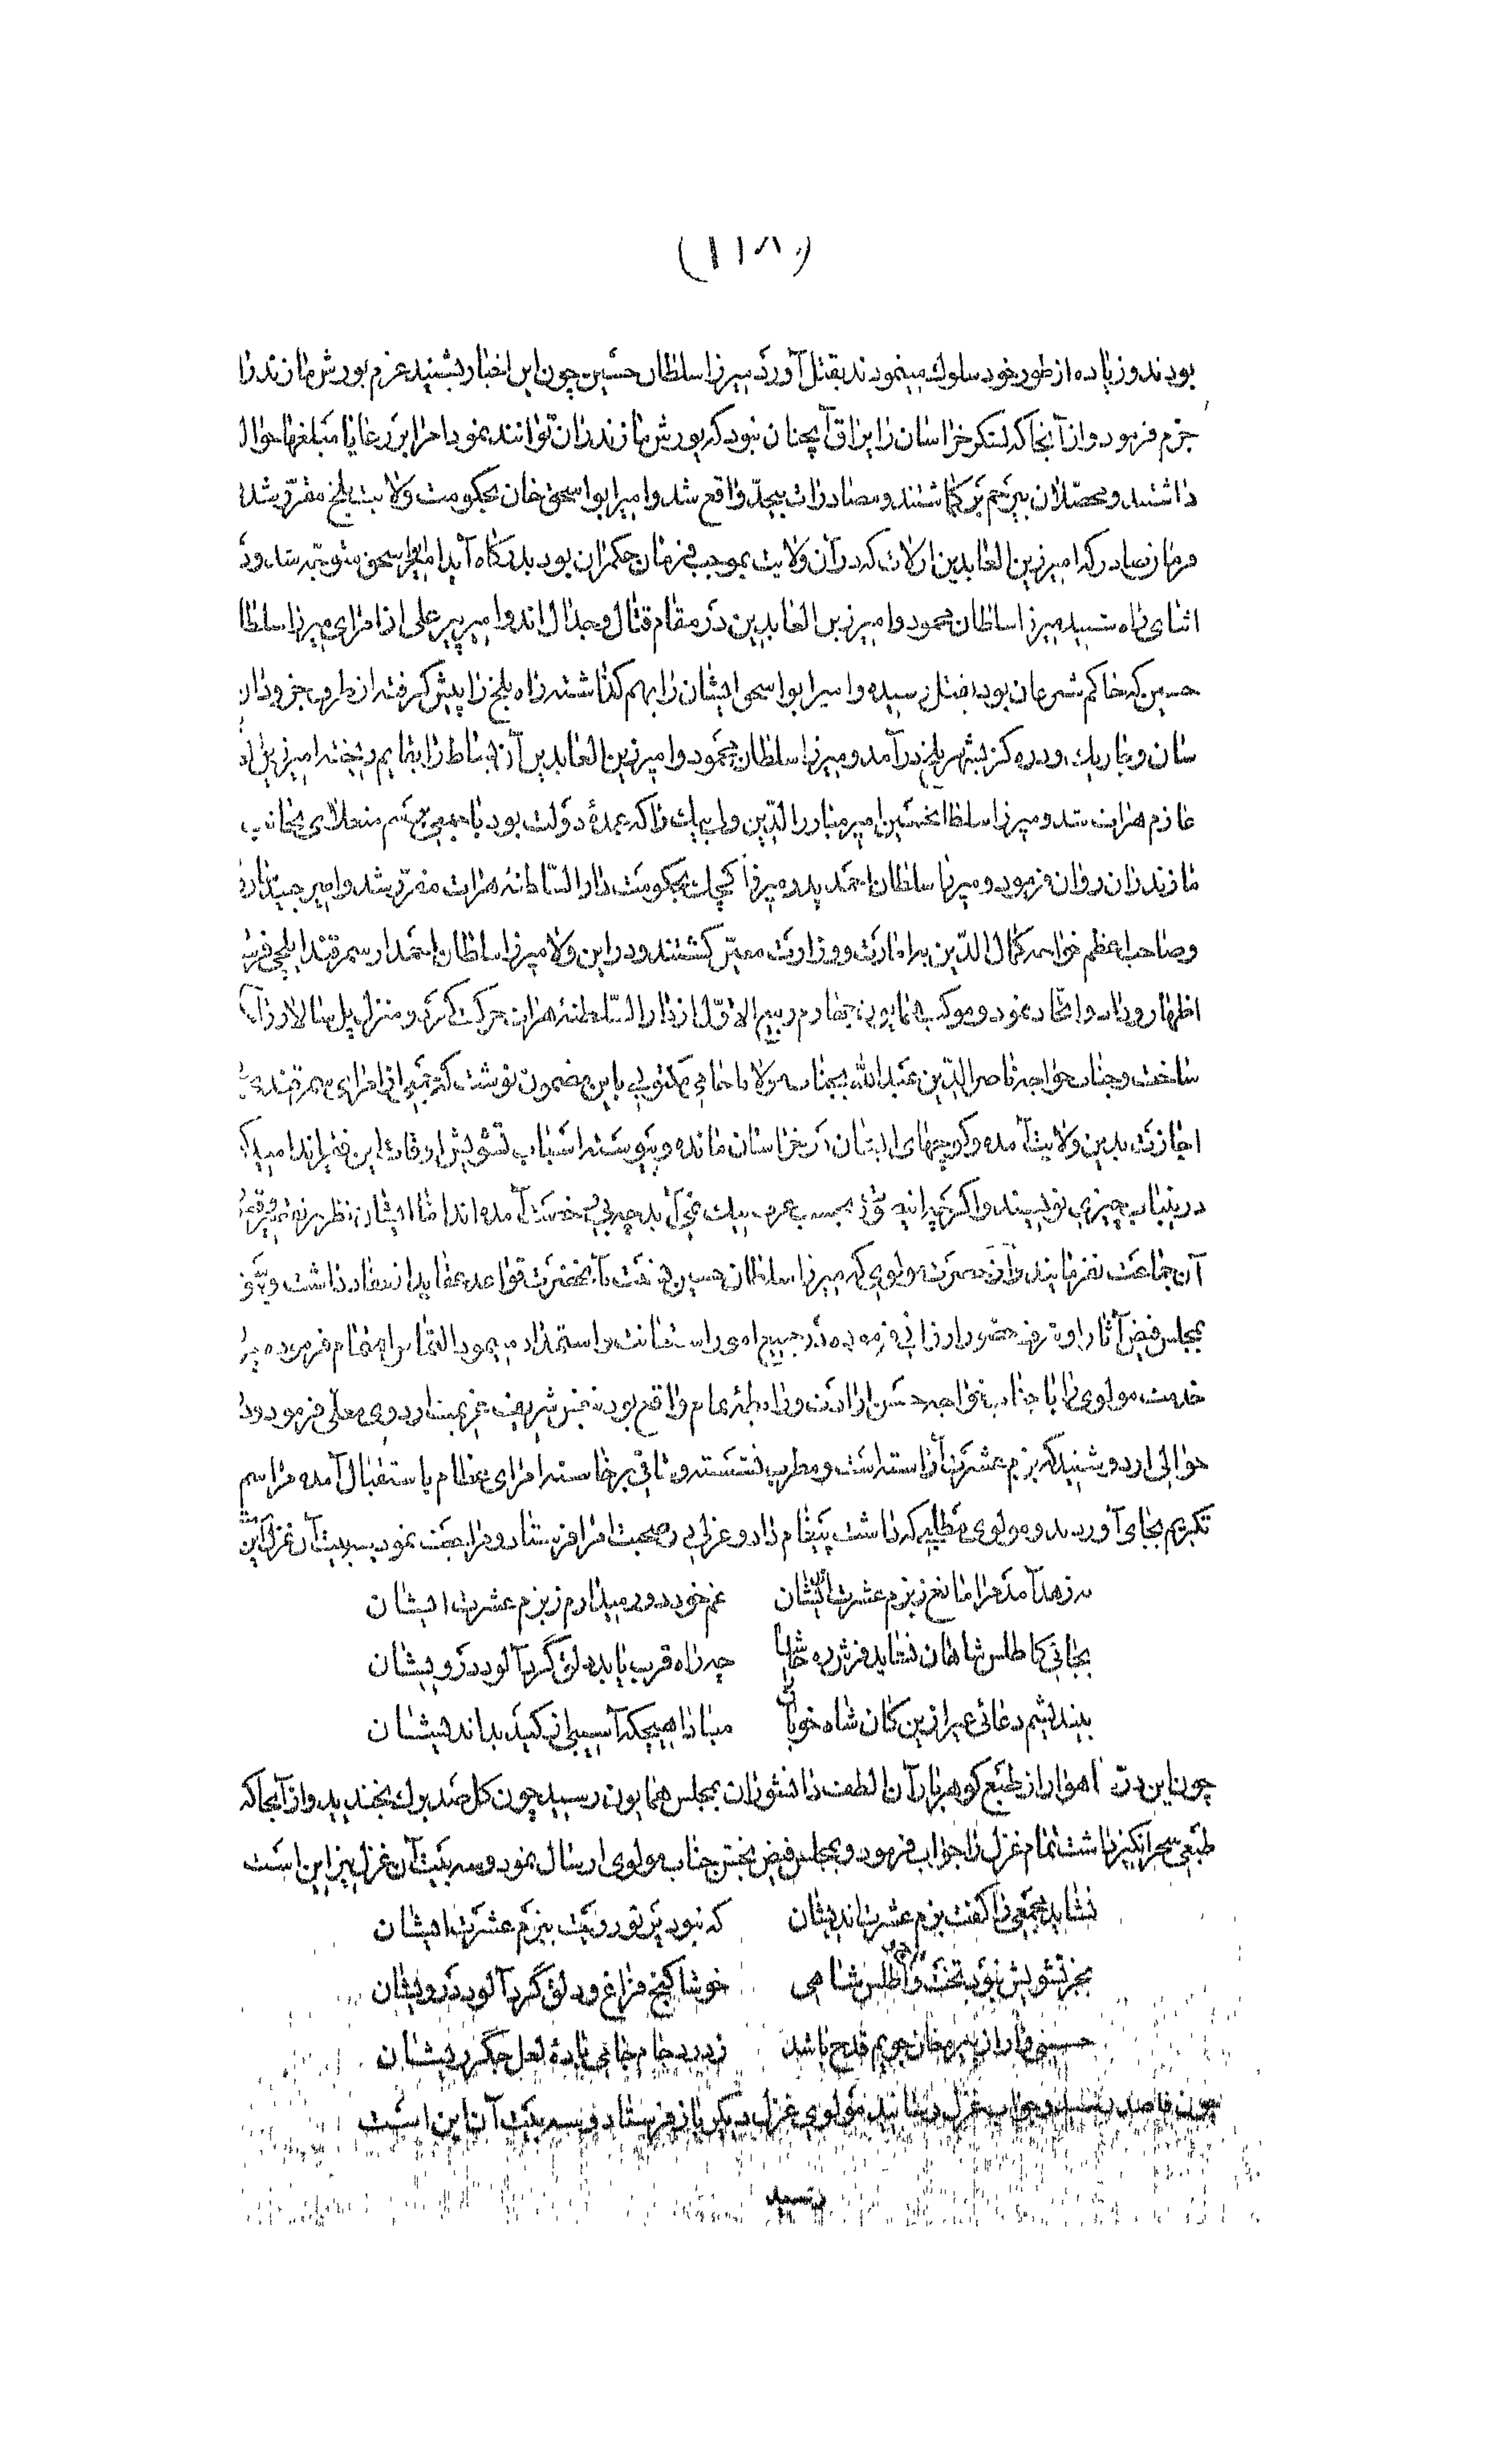 (۱۱۸۰)
بودند و زیاده از طور خود سلوك مینمودند بقتل آورد میرزا سلطان حسین چون این اخبار بشنید عزم یورش مازندرا
جزم فرمود و از آنجا که لشکر خراسان را یراق آنچنان نبود که یورش مازندران توانند نمود اخراجات بر رعایا مبلغها حوال
داشتند و محصّلان بیرحم بر گماشتند و مصادرات بیحدّ واقع شد و امیر ابو اسحق خان بحکومت ولایت بلخ مقرّر شد
فرمان صادر که امیر زین العابدین ارلات که در آن ولایت بموجب فرمان حکمران بود بدرگاه آید امیر ابو اسحق متوجّه شد و در
اثنای راه شنید میرزا سلطان محمود و امیر زین العابدین در مقام قتال و جدال اند و امیر پیر علی از امرای میرزا سلطا
حسین که حاکم شبرغان بود بقتل رسیده و امیر ابو اسحق ایشان را بهم گذاشته راه بلخ را پیش گرفته از طرف جزروان
سان و چاریك و دره گز بشهر بلخ درآمد و میرزا سلطان محمود و امیر زین العابدین آن بساط را بتمام ریخته امیر زین ال
عازم هرات شد و میرزا سلطانحسین امیر مبارز الدّین ولی بیك را که عمدۀ دولت بود با جمعی برسم منغلای بجانب
مازندران روان فرمود و میرزا سلطان احمد پدر میرزا کیچیك بحکومت دار السّلطنۀ هرات مقرّر شد و امیر جهاندار
و صاحب اعظم خواجه کمال الدّین بامارت و وزارت معیّن گشتند و در این ولا میرزا سلطان احمد از سمرقند ایلچی فرس
اظهار وداد و اتّحاد نمود و موکب همایون چهارم ربیع الاوّل از دار السّلطنۀ هرات حرکت کرد و منزل پل سالار را
ساخت و جناب خواجه ناصر الدّین عبد الله بجناب مولانا جامی مکتوبی باین مضمون نوشت که جمعی از امرای سمرقند بی
اجازت بدین ولایت آمده و کوچهای ایشان در خراسان مانده و پیوسته اسباب تشویش اوقات این فقیراند امید
درینباب چیزی نویسند و اگر چه از بحسب عرف نیك نمی‌آید چه بی رخصت آمده اند امّا ایشان نظر بر تقصیر
آن جماعت نفرمایند و آن حضرت مولوی که میرزا سلطان حسین نسبت بآنحضرت قواعد عقاید انعقاد داشت و پیو
بمجلس فیض آثار او شرف حضور ارزانی فرموده در جمیع امور استعانت و استمداد مینمود التماس اهتمام فرموده
خدمت مولوی را با جناب خواجه حسن ارادت و رابطۀ تمام واقع بود بنفس شریف عزیمت اردوی معلّی فرمود و در
حوالی اردو شنید که بزم عشرت آراسته است و مطرب نشسته و ساقی برخاسته امرای عظام باستقبال آمده مراسم
تکریم بجای آوردند و مولوی مطلبی که داشت پیغام داد و غزلی بصحبت امرا فرستاد و مراجعت نمود سه بیت آن غزل این است
نه زهد آمد مرا مانع ز بزم عشرت اندیشان غم خود دور میدارم ز بزم عشرت ایشان
بجائی کاطلس شاهان نشاید فرش ره حاشا چه راه قرب یابد دلق گرد آلود درویشان
بیندیشم دعائی غیر ازین کان شاه خوبان را مبادا هیچگه آسیبی از کید بداندیشان
چون این درّ شاهوار از طبع گوهربار آن الطف دانشوران بمجلس همایون رسید چون گل صد برگ بخندید و از آنجا که
طبعی سحرانگیز داشت تمام غزل را جواب فرمود و بمجلس فیض بخش جناب مولوی ارسال نمود و سه بیت آن غزل نیز این است
نشاید جمعی را گفت بزم عشرت اندیشان که نبود پرتو رویت ببزم عشرت ایشان
بجز تشویش نبود تخت و اطلس شاهی خوشا کنج فراغ و دلق گرد آلود درویشان
حسینی وار از پیر مغان جویم قدح باشد ز درد جام جامی بادۀ لعل جگر ریشان
چون قاصد رسید و جواب غزل رسانید مولوی غزل دیگر باز فرستاد و سه بیت آن این است
رسید